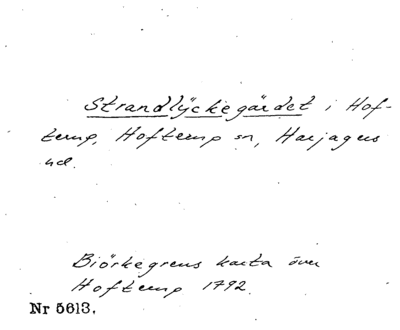 Strandlyckegärdet i Hof-
terup, Hofterup sn, Harjagers
hd.
Biörkegrens karta över
Hofterup 1792.
Nr 5613.